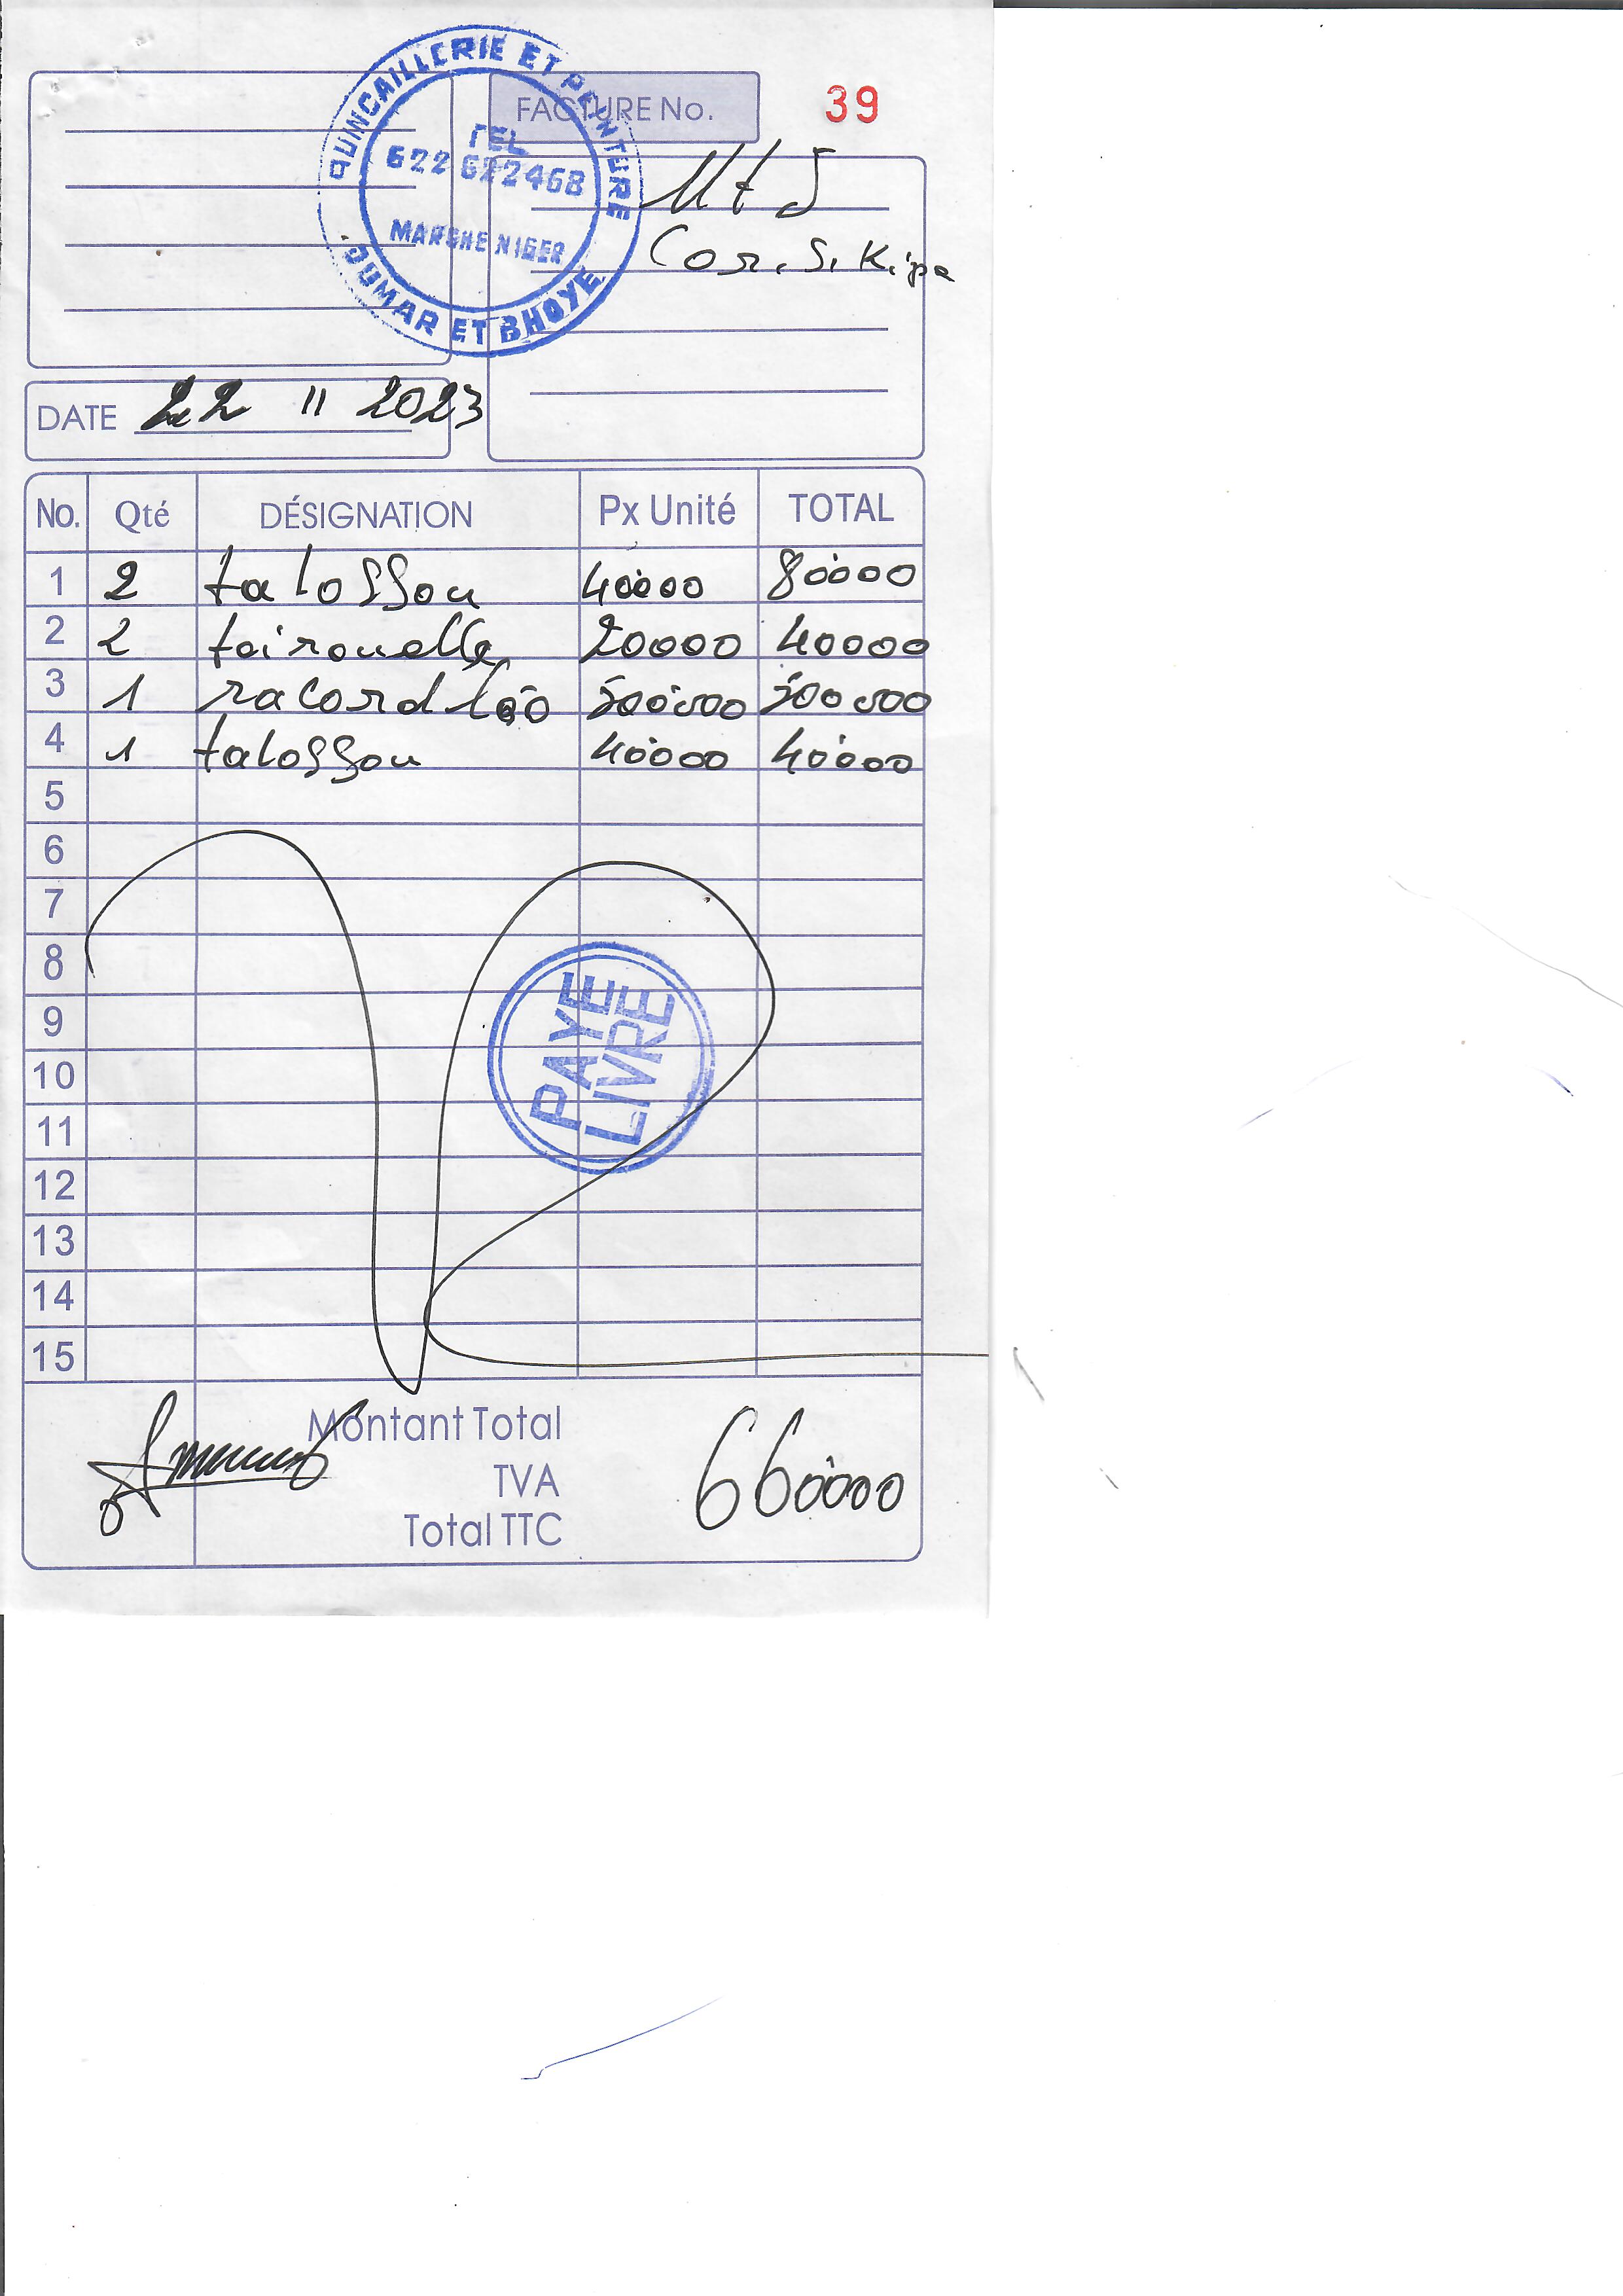 QUINCAILLERIE ET PEINTURE
TEL
622 622468
MARCHE NIGER
OUMAR ET BHOYE
FACTURE No. 39
MtJ
Cor. S. K.
DATE 22 11 2023
No. Qté DÉSIGNATION Px Unité TOTAL
1 2 talossou 40000 80000
2 2 toironelle 20000 40000
3 1 racord 500000 500000
4 1 talossou 40000 40000
5
6
7
8
9
10
11
12
13
14
15
PAYE
LIVRE
Montant Total
TVA 660000
Total TTC